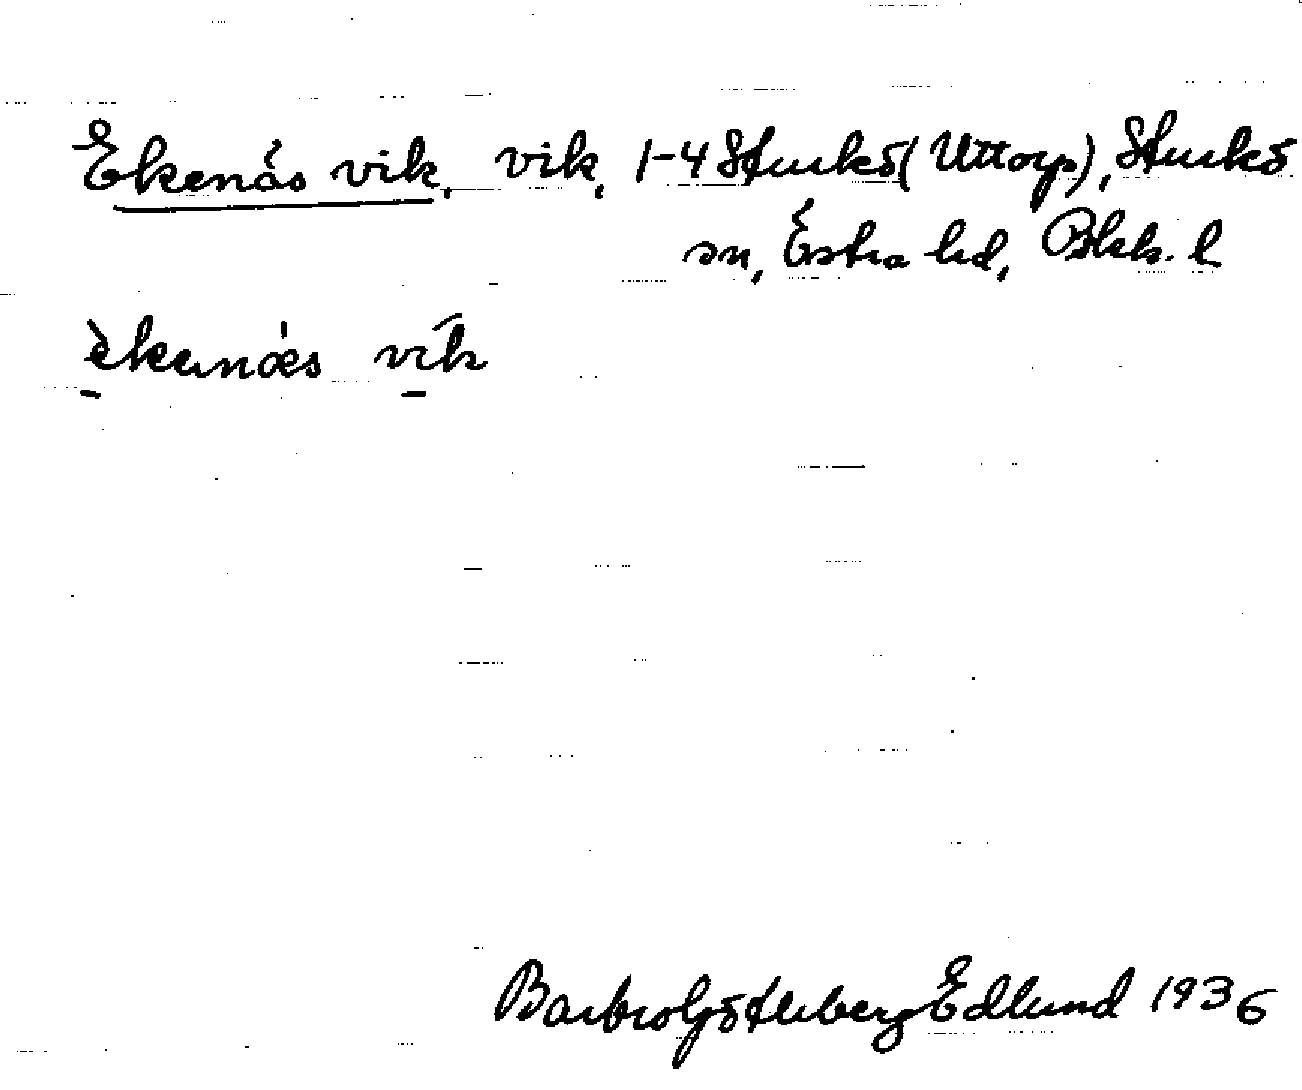 Ekenäs vik, vik, 1-4 Sturkö (Uttorp), Sturkö
sn, Östra hd, Blek. l
èkenäs vik
Barbro Götleberg Edlund 1936